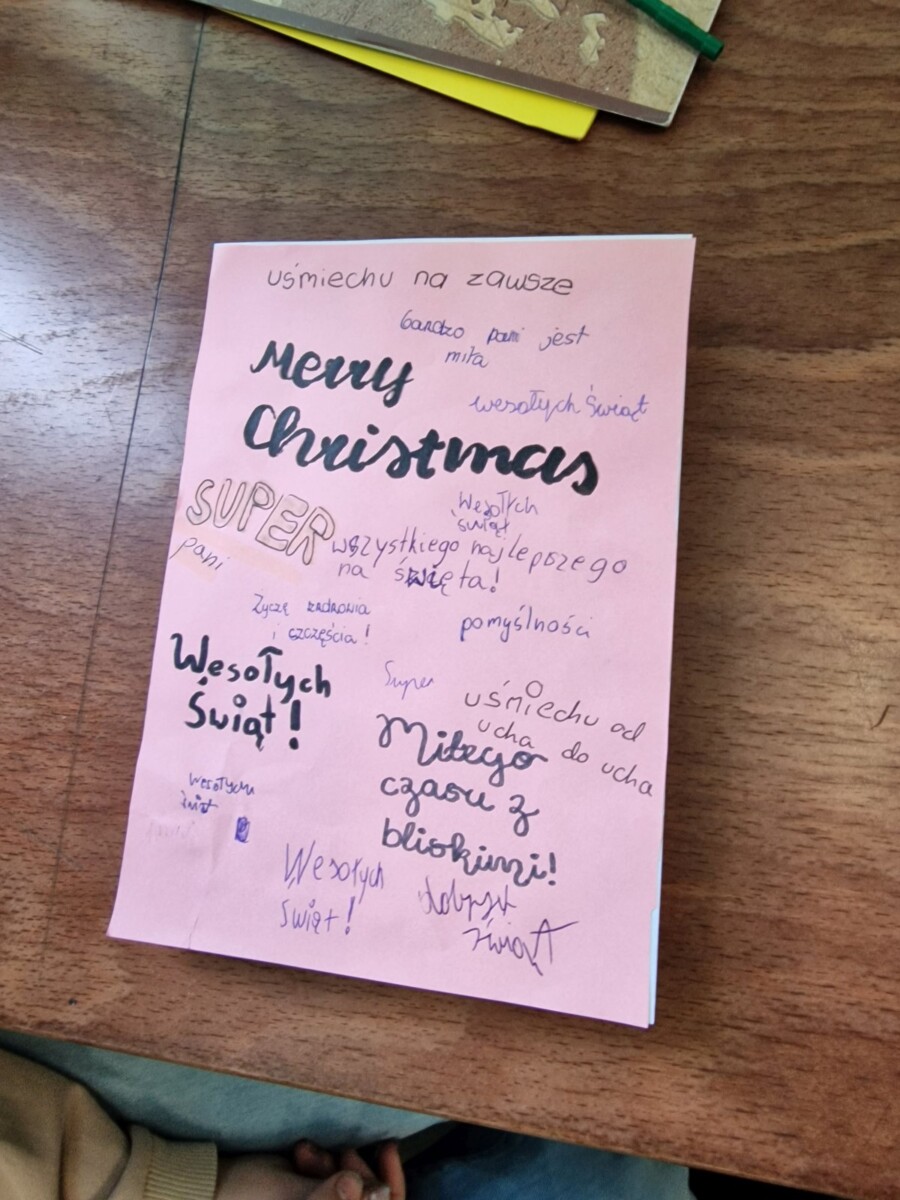 uśmiechu na zawsze
bardzo pani jest
miła
Merry
wesołych świąt
Christmas
SUPER
pani
Wesołych
świąt
wszystkiego najlepszego
na święta!
Życzę zadrowia
i szczęścia!
pomyślności
Wesołych
Świąt!
Super
uśmiechu od
ucha do ucha
Miłego
czasu z
bliskimi!
wesołych
świąt
Wesołych
świąt!
świąt